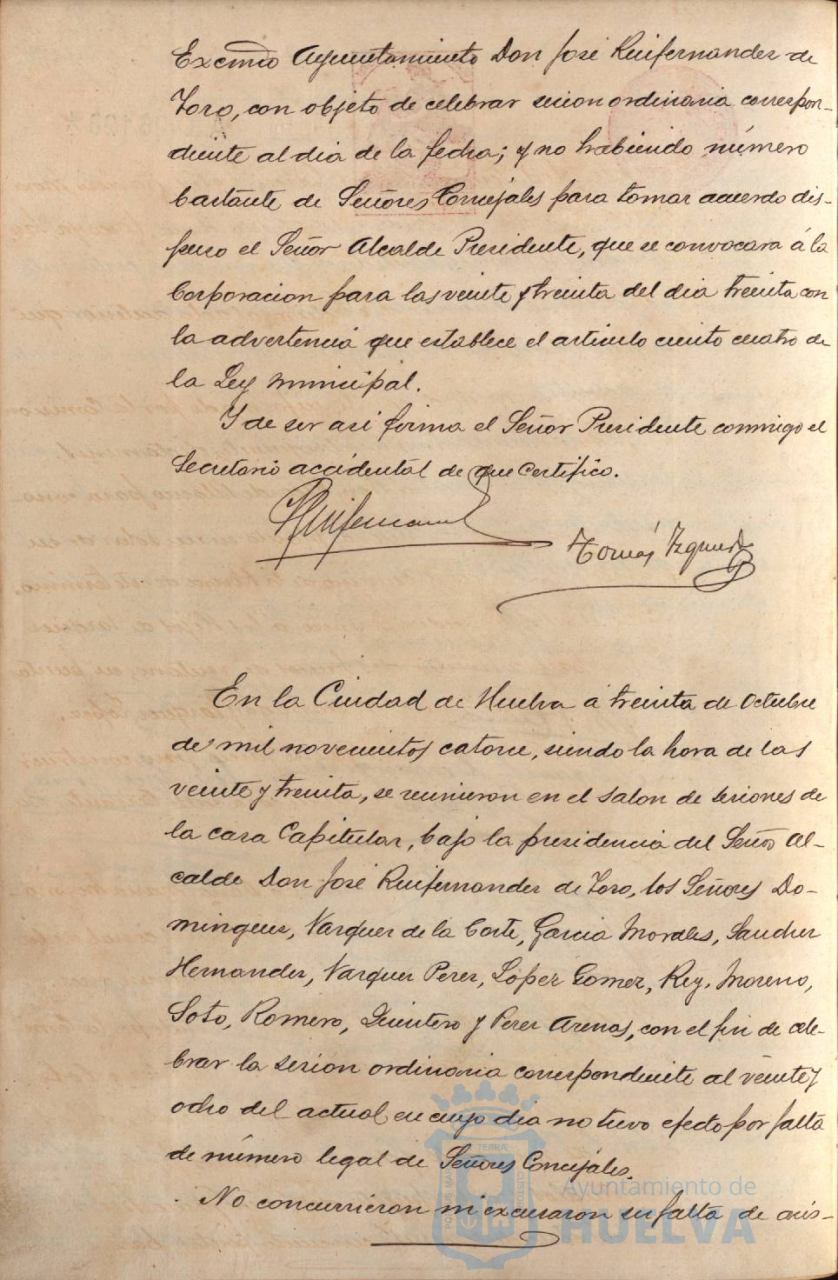 Excmo Ayuntamiento Don José Ruifernandez de
Toro, con objeto de celebrar sesion ordinaria correspon-
diente al dia de la fecha; y no habiendo número
bastante de Señores Concejales para tomar acuerdo dis-
puso el Señor Alcalde Presidente, que se convocara á la
Corporacion para las veinte y treinta del dia treinta con
la advertencia que establece el articulo ciento cuatro de
la Ley municipal.
Y de ser asi firma el Señor Presidente conmigo el
Secretario accidental de que Certifico.
Ruifernandez
Tomás Izquierdo
En la Ciudad de Huelva á treinta de Octubre
de mil novecientos catorce, siendo la hora de las
veinte y treinta, se reunieron en el salon de sesiones de
la casa Capitular, bajo la presidencia del Señor Al-
calde Don José Ruifernandez de Toro, los Señores Do-
minguez, Vazquez de la Corte, Garcia Morales, Sanchez
Hernandez, Vazquez Perez, López Gomez, Rey, Moreno,
Soto, Romero, Quintero y Perez Arenas, con el fin de cele-
brar la sesion ordinaria correspondiente al veinte y
ocho del actual en cuyo dia no tuvo efecto por falta
de número legal de Señores Concejales.
No concurrieron ni excusaron su falta de asis-
Ayuntamiento de
HUELVA